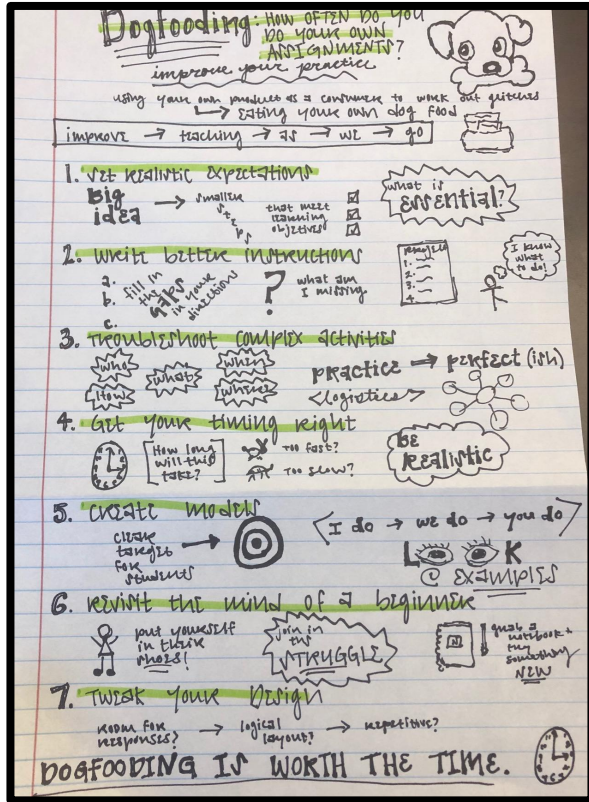 Dogfooding: HOW OFTEN DO YOU
DO YOUR OWN
ASSIGNMENTS?
improve your practice
using your own product as a consumer to work out glitches
→ EATING YOUR OWN DOG FOOD
improve → teaching → as → we → go
1. set realistic expectations
Big idea → smaller steps
that meet learning objectives
what is ESSENTIAL?
2. write better instructions
a.
b.
c.
fill in the GAPS in your directions
? what am I missing
1.
2.
3.
4.
I know what to do!
3. Troubleshoot complex activities
who what when
How where
practice → perfect (ish)
<logistics>
4. Get your timing right
[How long will this take?]
Too fast?
Too slow?
BE REALISTIC
5. create models
clear targets for students
<I do → we do → you do>
LOOK
@ EXAMPLES
6. revisit the mind of a beginner
put yourself in their shoes!
join in the STRUGGLE
N
grab a notebook + try something NEW
7. Tweak your Design
room for responses? → logical layout? → repetitive?
DOGFOODING IS WORTH THE TIME.